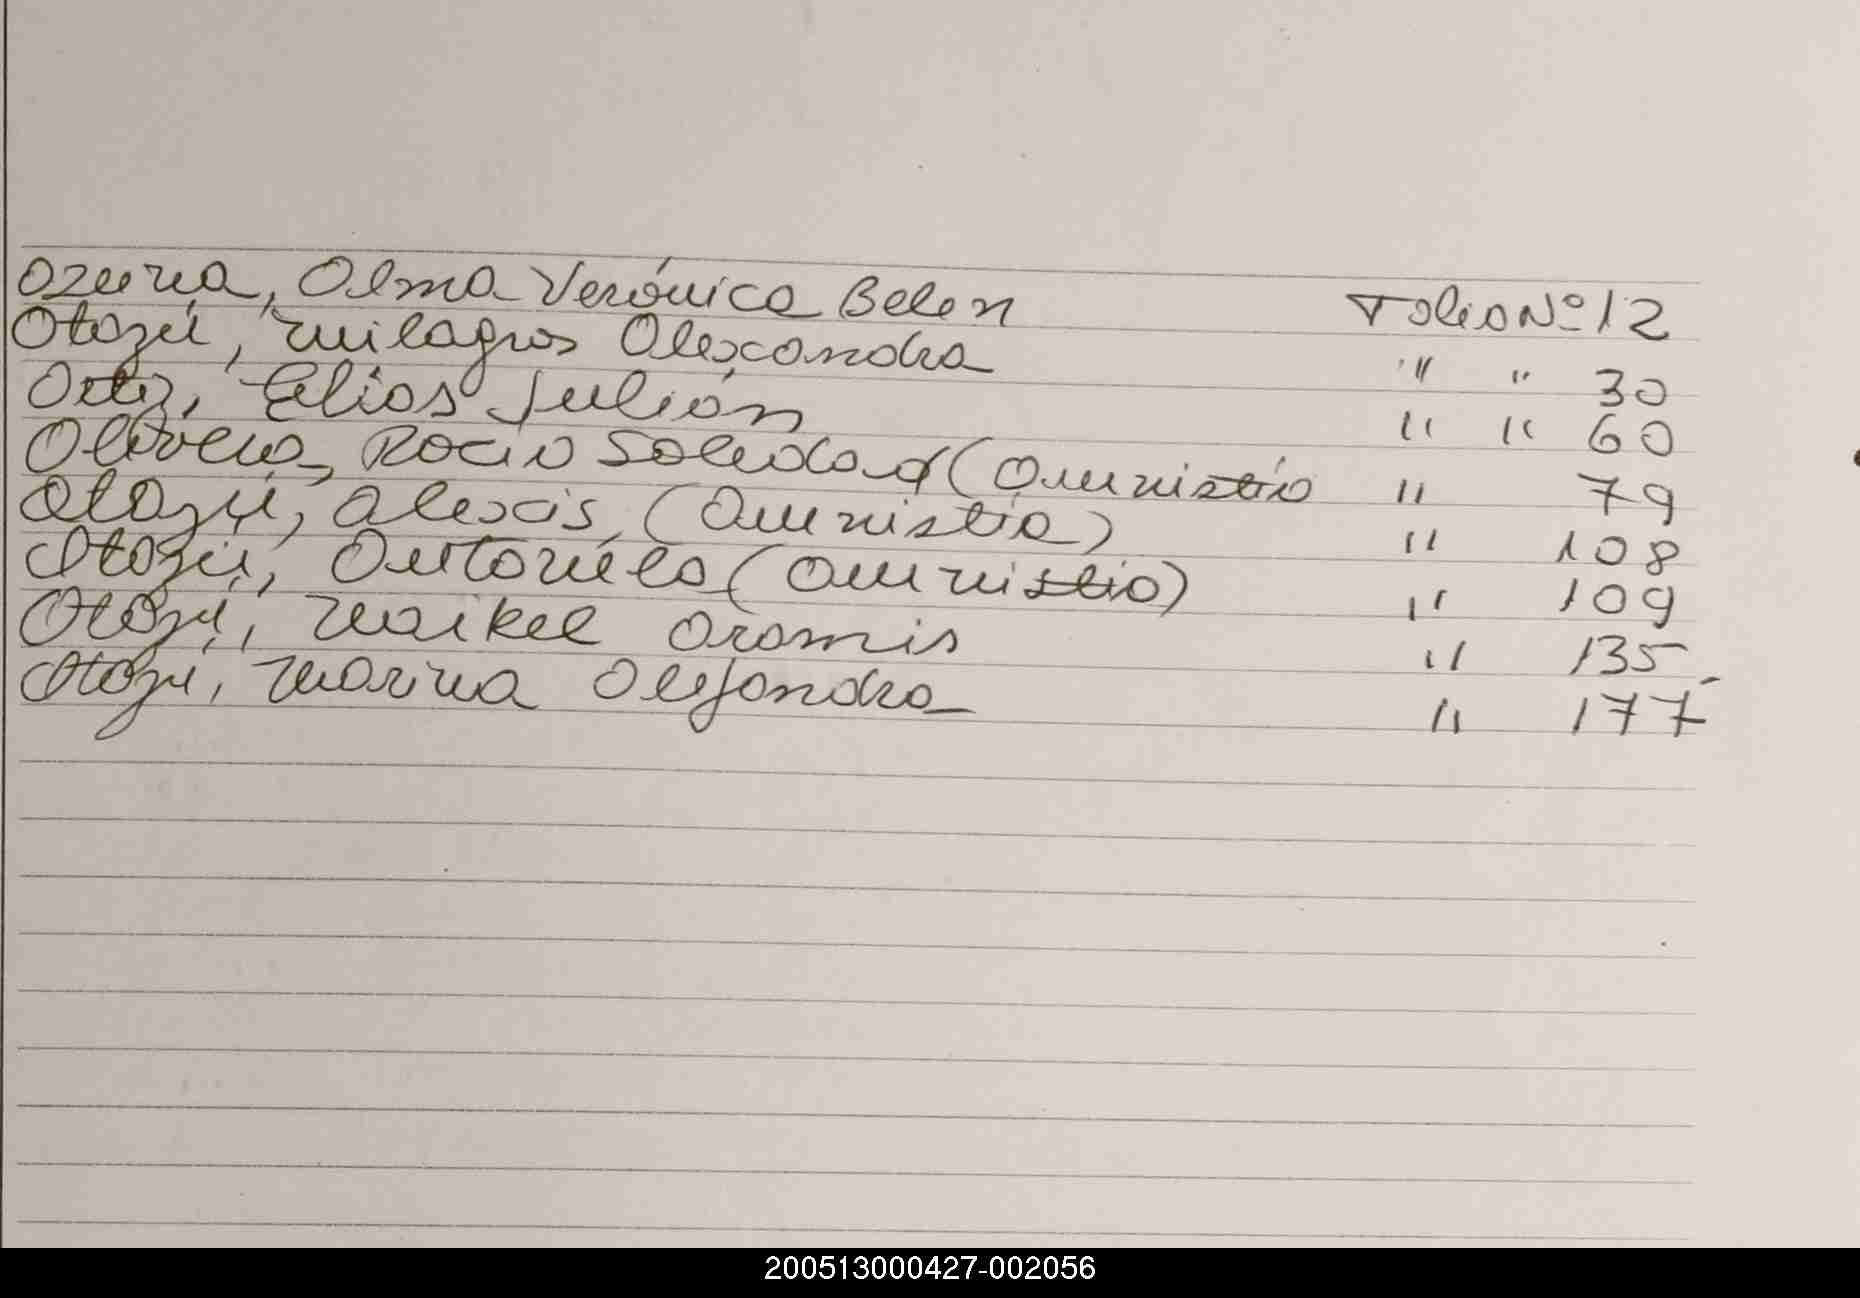 Ozuna, Alma Verónica Belen Folio Nº 12
Otazú, Milagros Alexandra " " 30
Ortiz, Elias Julián " " 60
Olivera, Rocio Soledad (Amnistía " 79
Otazú, Alexis (Amnistía) " 108
Otazú, Antonela (Amnistía) " 109
Otazú, Maikel Aramis " 135
Otazú, Marina Alejandra " 177
200513000427-002056